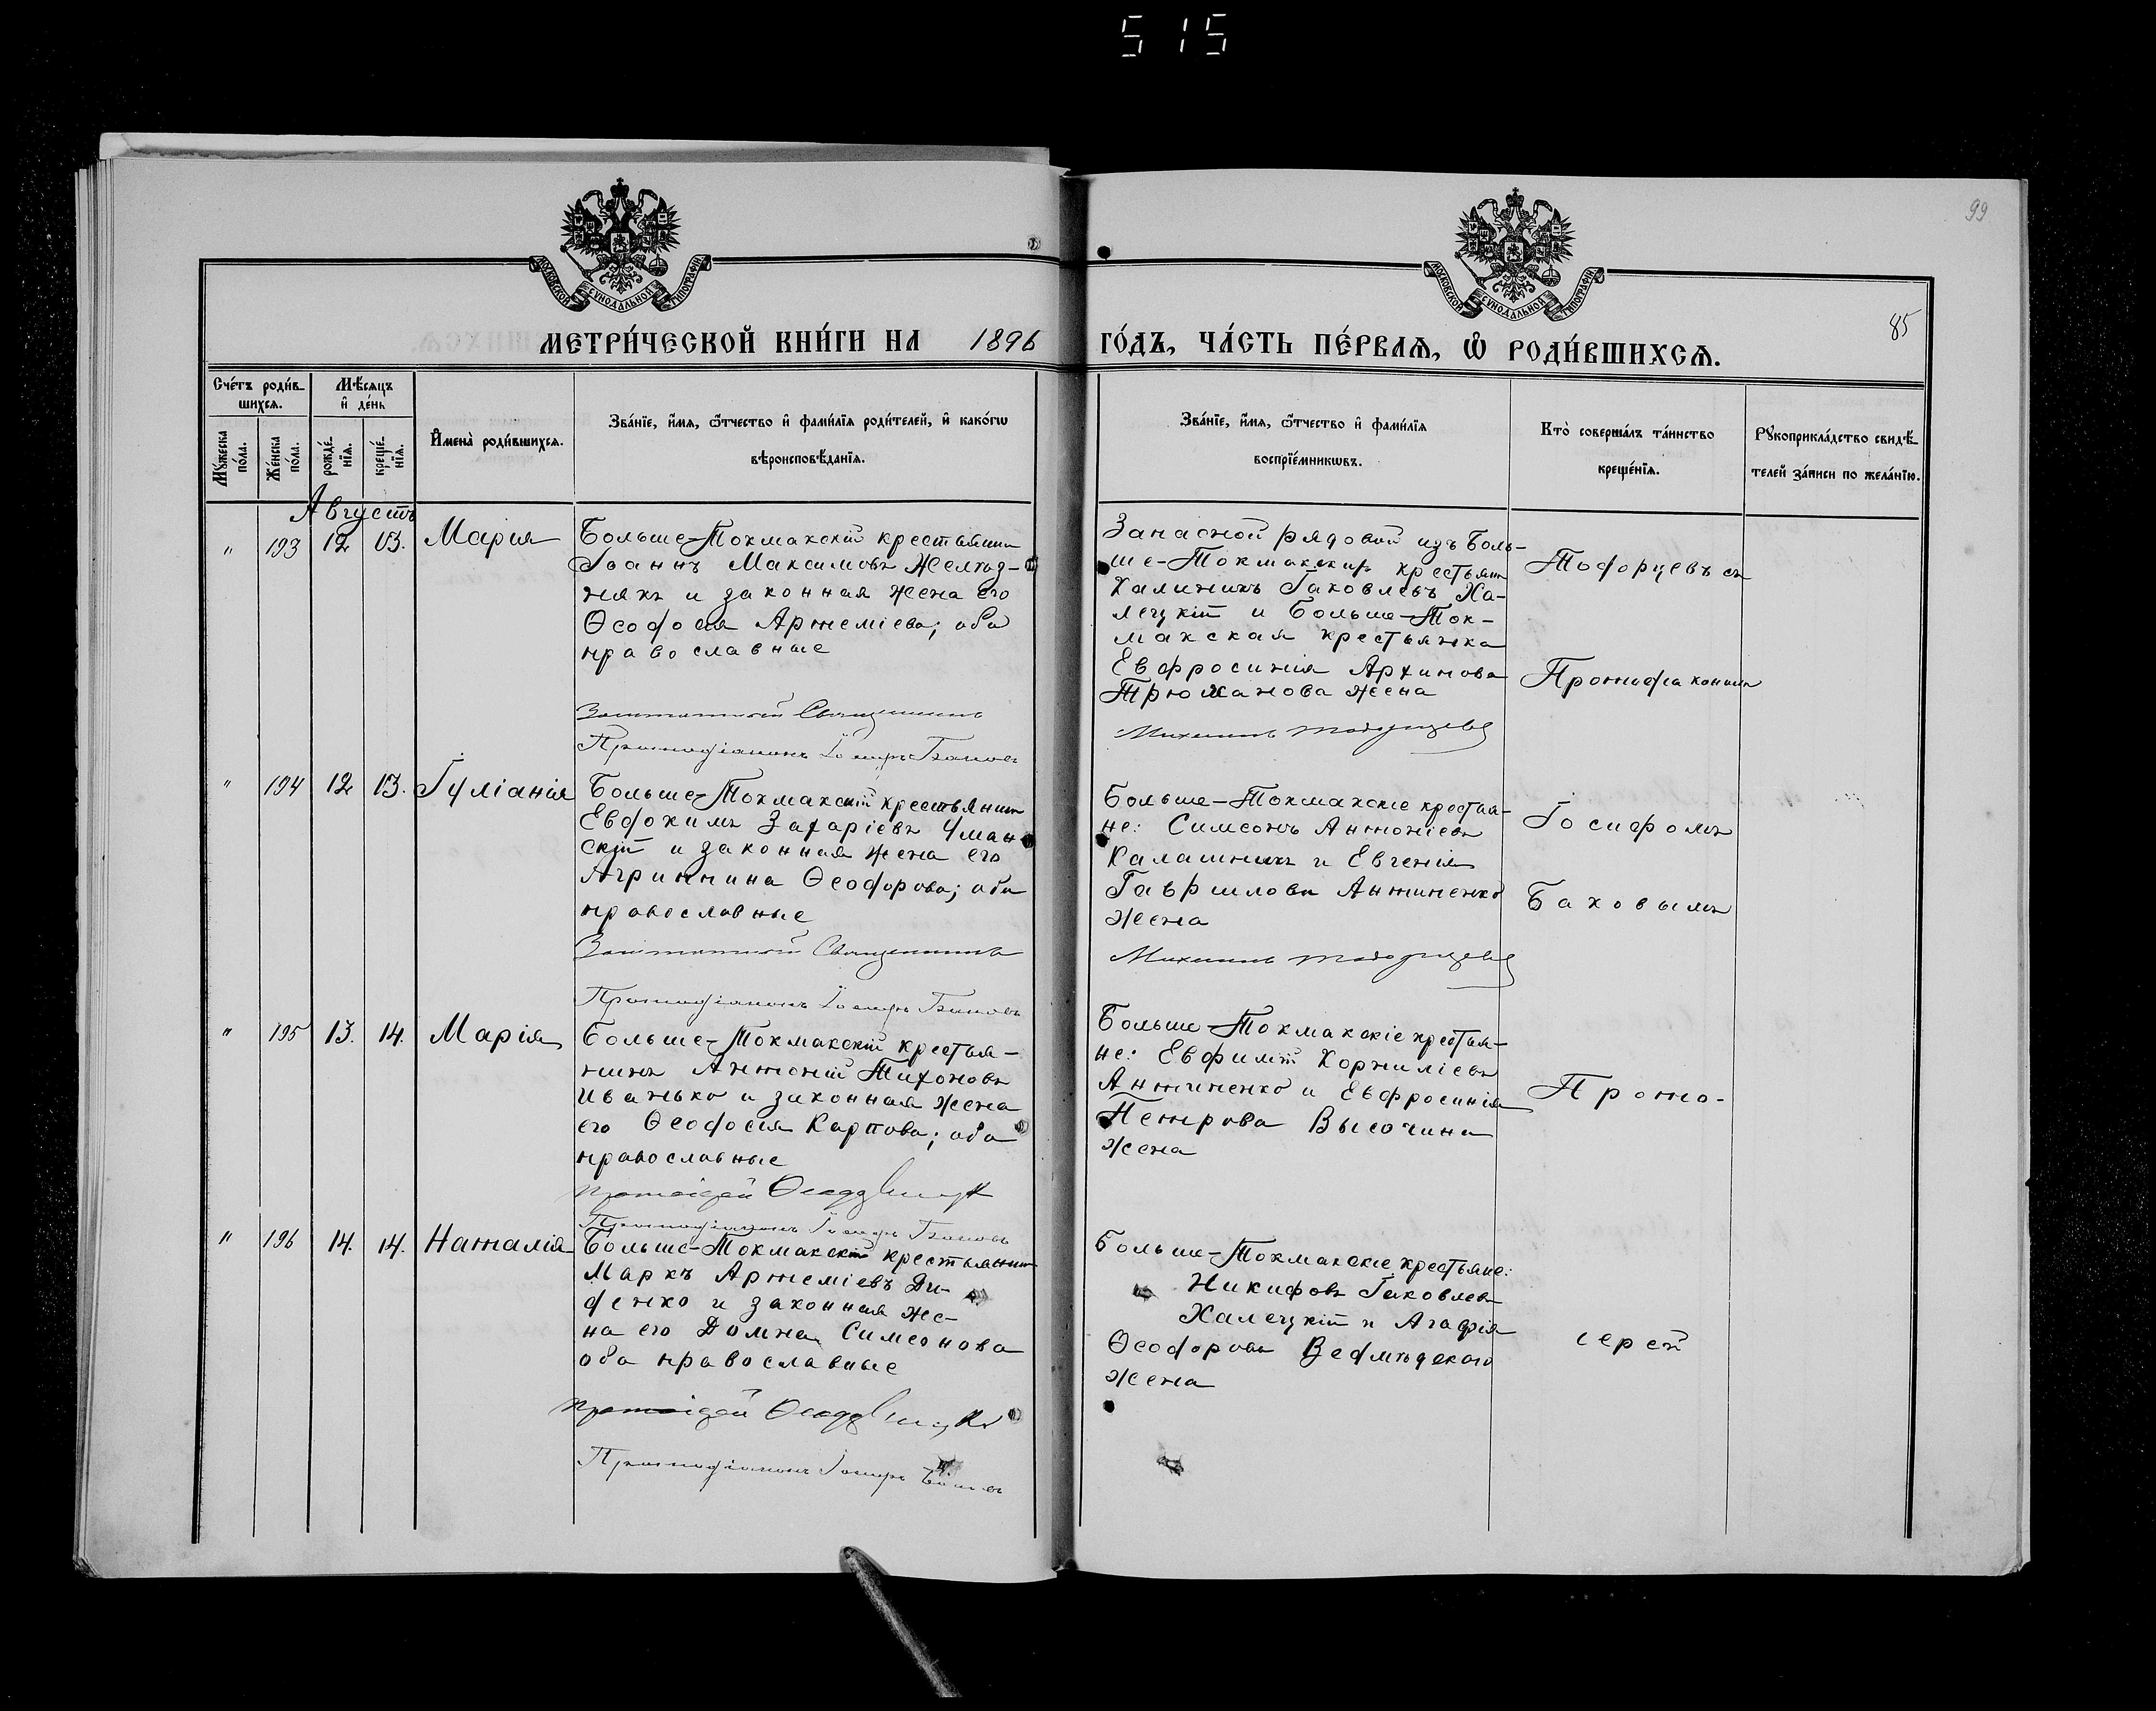 515
99
МОСКОВСКОЙ СѴНОДАЛЬНОЙ ТИПОГРАФІИ
МОСКОВСКОЙ СѴНОДАЛЬНОЙ ТИПОГРАФІИ
85
МЕТРИ́ЧЕСКОЙ КНИ́ГИ НА 1896 ГО́ДЪ, ЧА́СТЬ ПЕ́РВАѦ, Ѡ҆ РОДИ́ВШИХСѦ.
Сче́тъ роди́в-
шихсѧ.
Мꙋ́жеска по́ла.
Же́нска по́ла.
Мѣ́сѧцъ
и҆ де́нь
рожде́-
нїѧ.
креще́-
нїѧ.
И҆мена̀ роди́вшихсѧ.
Зва́нїе, и҆́мѧ, ѻ҆́тчество и҆ фами́лїѧ роди́телей, и҆ како́гѡ
вѣроисповѣ́данїѧ.
Зва́нїе, и҆́мѧ, ѻ҆́тчество и҆ фами́лїѧ
воспрїе́мникѡвъ.
Кто̀ соверша́лъ та́инство
креще́нїѧ.
Рꙋкоприкла́дство свидѣ́-
телей за́писи по жела́нїю.
Августъ
" 193 12 13. Марія
Больше-Токмакскій крестьянинъ
Іоаннъ Максимовъ
и законная жена его
Ѳеодосія Артеміева; оба
православные
Заштатный Священникъ
Протодіаконъ Іосифъ
Запасной рядовой изъ Боль-
ше-Токмакских крестьян
Калиникъ Іаковлевъ Ха-
лецкій и Больше-Ток-
макская крестьянка
Евфросинія Архипова
Трюханова жена
Михаилъ
съ
Протодіакономъ
" 194 12 13. Іуліанія
Больше-Токмакскій крестьянинъ
Евдокимъ Захаріевъ Уман-
скій и законная жена его
Агриппина Ѳеодорова; оба
православные
Заштатный Священникъ
Протодіаконъ Іосифъ
Больше-Токмакскіе крестья-
не: Симеонъ Антоніевъ
Калашникъ и Евгенія
Гавриилова Антиненко
жена
Михаилъ
Іосифомъ
" 195 13. 14. Марія
Больше-Токмакскій крестья-
нинъ Антоній Тихоновъ
Иванько и законная жена
его Ѳеодосія Карпова; оба
православные
Протоіерей
Протодіаконъ Іосифъ
Больше-Токмакскіе крестья-
не: Евфимій Корниліевъ
Антиненко и Евфросинія
Петрова Высочина
жена
Прото-
" 196 14. 14. Наталія
Больше-Токмакскій крестьянинъ
Маркъ Артеміевъ Ди-
денко и законная же-
на его Домна Симеонова
оба православные
Протоіерей
Протодіаконъ Іосифъ
Больше-Токмакскіе крестьяне:
Никифоръ Іаковлевъ
Халецкій и Агафія
Ѳеодорова
жена
іерей